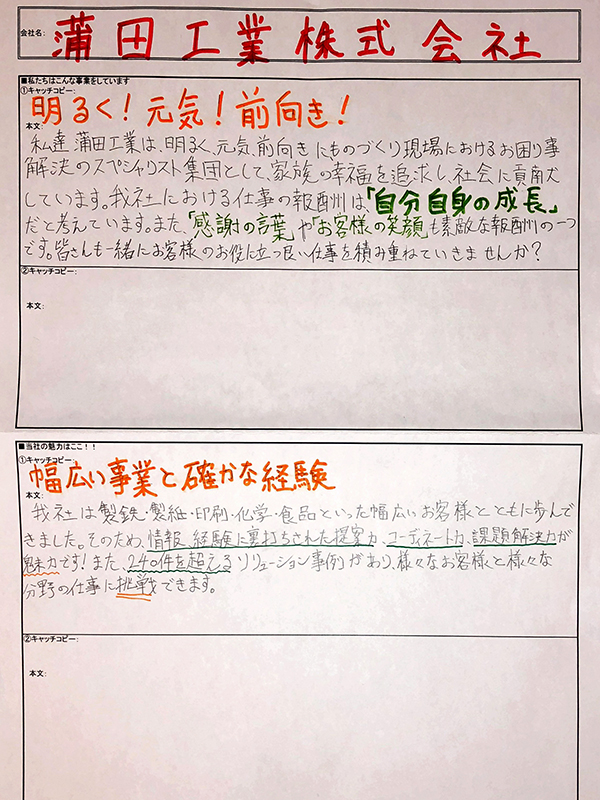 会社名: 蒲田工業株式会社
■私たちはこんな事業をしています
①キャッチコピー:
明るく！元気！前向き！
本文:
私達蒲田工業は、明るく、元気、前向きにものづくり現場におけるお困り事
解決のスペシャリスト集団として、家族の幸福を追求し、社会に貢献
しています。我社における仕事の報酬は「自分自身の成長」
だと考えています。また、「感謝の言葉」や「お客様の笑顔」も素敵な報酬の一つ
です。皆さんも一緒にお客様のお役に立つ良い仕事を積み重ねていきませんか？
②キャッチコピー:
本文:
■当社の魅力はここ！！
①キャッチコピー:
幅広い事業と確かな経験
本文:
我社は製鉄・製紙・印刷・化学・食品といった幅広いお客様とともに歩んで
きました。そのため、情報、経験に裏打ちされた提案力、コーディネート力、課題解決力が
魅力です！また、240件を超えるソリューション事例があり、様々なお客様と様々な
分野の仕事に挑戦できます。
②キャッチコピー:
本文: